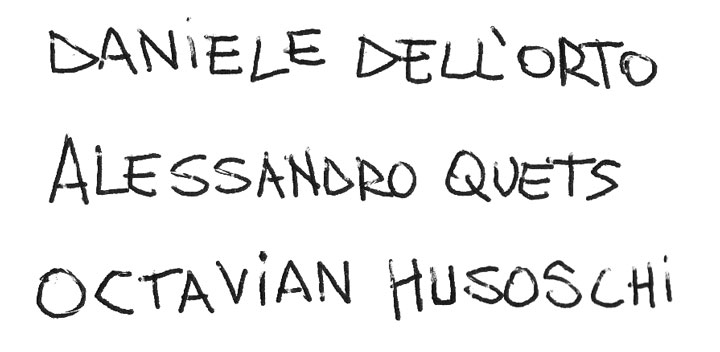 DANiELE DELL'ORTO
ALESSANDRO QUETS
OCTAViAN HUSOSCHi